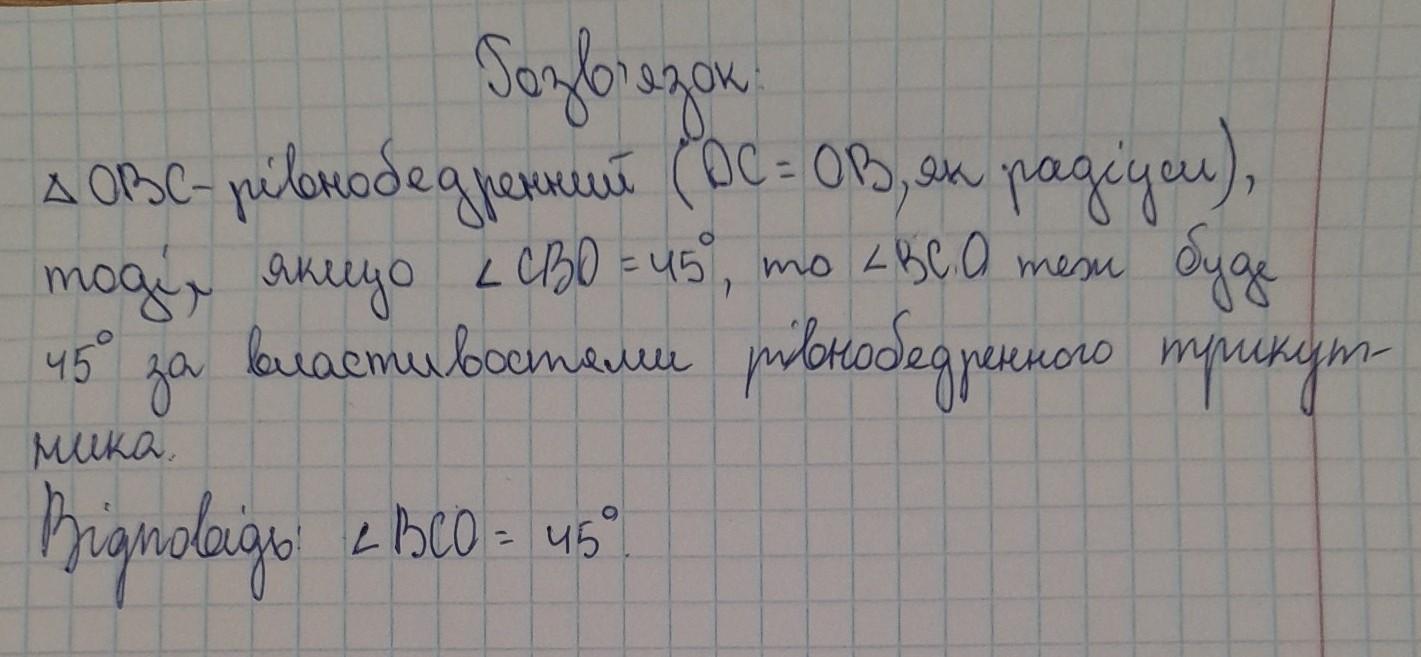 Розв'язок:
△OBC - рівнобедренний (OC = OB, як радіуси),
тоді, якщо ∠CBO = 45°, то ∠BCO теж буде
45° за властивостями рівнобедренного трикут-
ника.
Відповідь: ∠BCO = 45°.